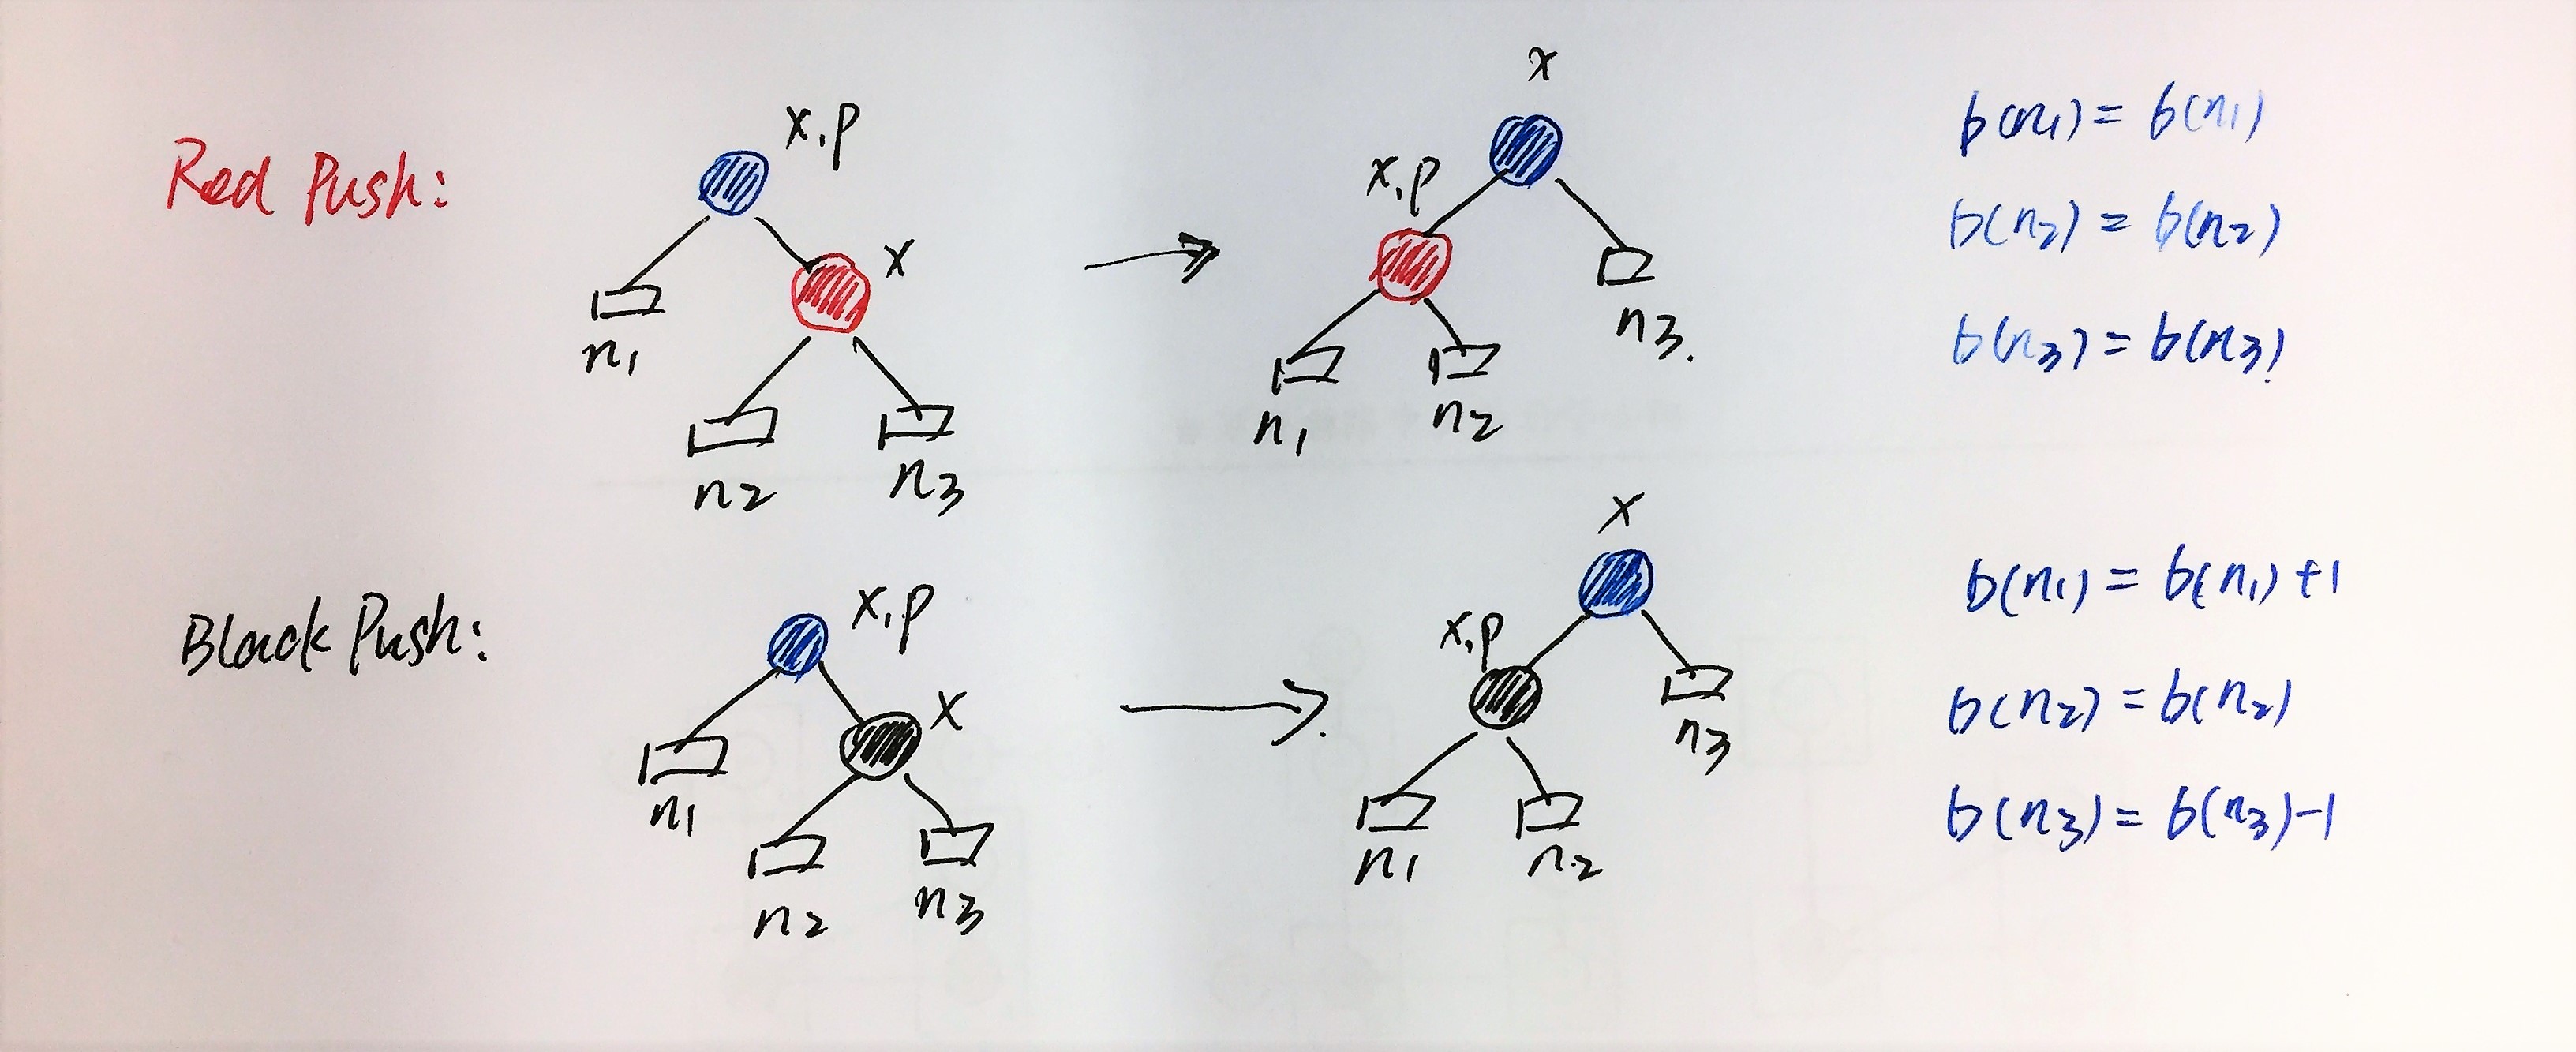 Red Push:
x,p
x
n1
n2
n3
x
x,p
n1
n2
n3.
b(n1) = b(n1)
b(n2) = b(n2)
b(n3) = b(n3)
Black Push:
x,p
x
n1
n2
n3
x
x,p
n1
n2
n3
b(n1) = b(n1) +1
b(n2) = b(n2)
b(n3) = b(n3)-1